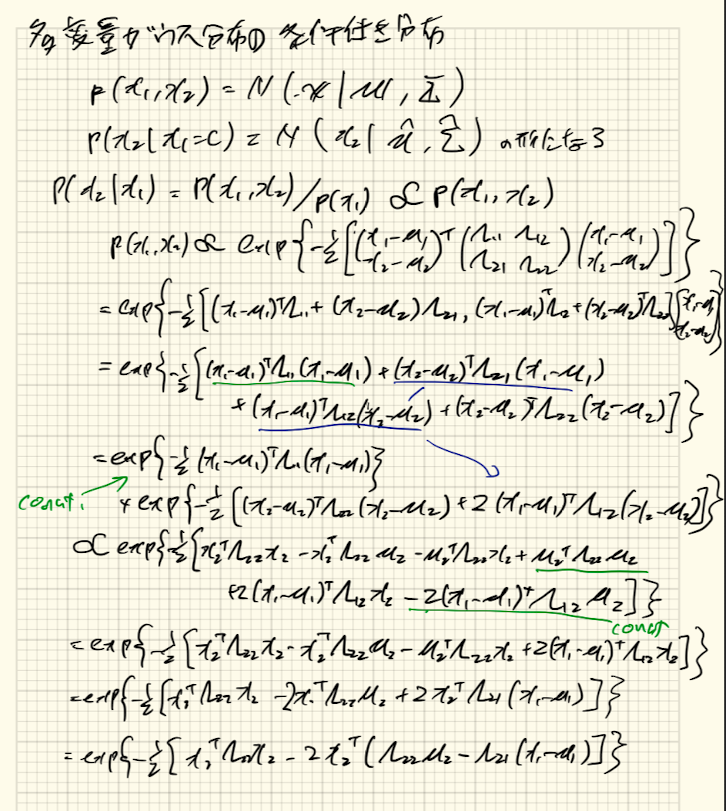 多変量ガウス分布の条件付き分布
p(x₁,x₂) = N(x|μ,Σ)
p(x₂|x₁=c) = N(x₂|μ̂,Σ̂) の形になる
p(x₂|x₁) = p(x₁,x₂)/p(x₁) ∝ p(x₁,x₂)
p(x₁,x₂) ∝ exp{-1/2[(x₁-μ₁ x₂-μ₂)ᵀ(Λ₁₁ Λ₁₂ Λ₂₁ Λ₂₂)(x₁-μ₁ x₂-μ₂)]}
= exp{-1/2[(x₁-μ₁)ᵀΛ₁₁+(x₂-μ₂)Λ₂₁, (x₁-μ₁)ᵀΛ₁₂+(x₂-μ₂)ᵀΛ₂₂](x₁-μ₁ x₂-μ₂)}
= exp{-1/2[(x₁-μ₁)ᵀΛ₁₁(x₁-μ₁)+(x₂-μ₂)ᵀΛ₂₁(x₁-μ₁)
+(x₁-μ₁)ᵀΛ₁₂(x₂-μ₂)+(x₂-μ₂)ᵀΛ₂₂(x₂-μ₂)]}
= exp{-1/2(x₁-μ₁)ᵀΛ₁₁(x₁-μ₁)}
const.
* exp{-1/2[(x₂-μ₂)ᵀΛ₂₂(x₂-μ₂)+2(x₁-μ₁)ᵀΛ₁₂(x₂-μ₂)]}
∝ exp{-1/2[x₂ᵀΛ₂₂x₂-x₂ᵀΛ₂₂μ₂-μ₂ᵀΛ₂₂x₂+μ₂ᵀΛ₂₂μ₂
+2(x₁-μ₁)ᵀΛ₁₂x₂-2(x₁-μ₁)ᵀΛ₁₂μ₂]}
const
= exp{-1/2[x₂ᵀΛ₂₂x₂-x₂ᵀΛ₂₂μ₂-μ₂ᵀΛ₂₂x₂+2(x₁-μ₁)ᵀΛ₁₂x₂]}
= exp{-1/2[x₂ᵀΛ₂₂x₂-2x₂ᵀΛ₂₂μ₂+2x₂ᵀΛ₂₁(x₁-μ₁)]}
= exp{-1/2[x₂ᵀΛ₂₂x₂-2x₂ᵀ(Λ₂₂μ₂-Λ₂₁(x₁-μ₁)]}